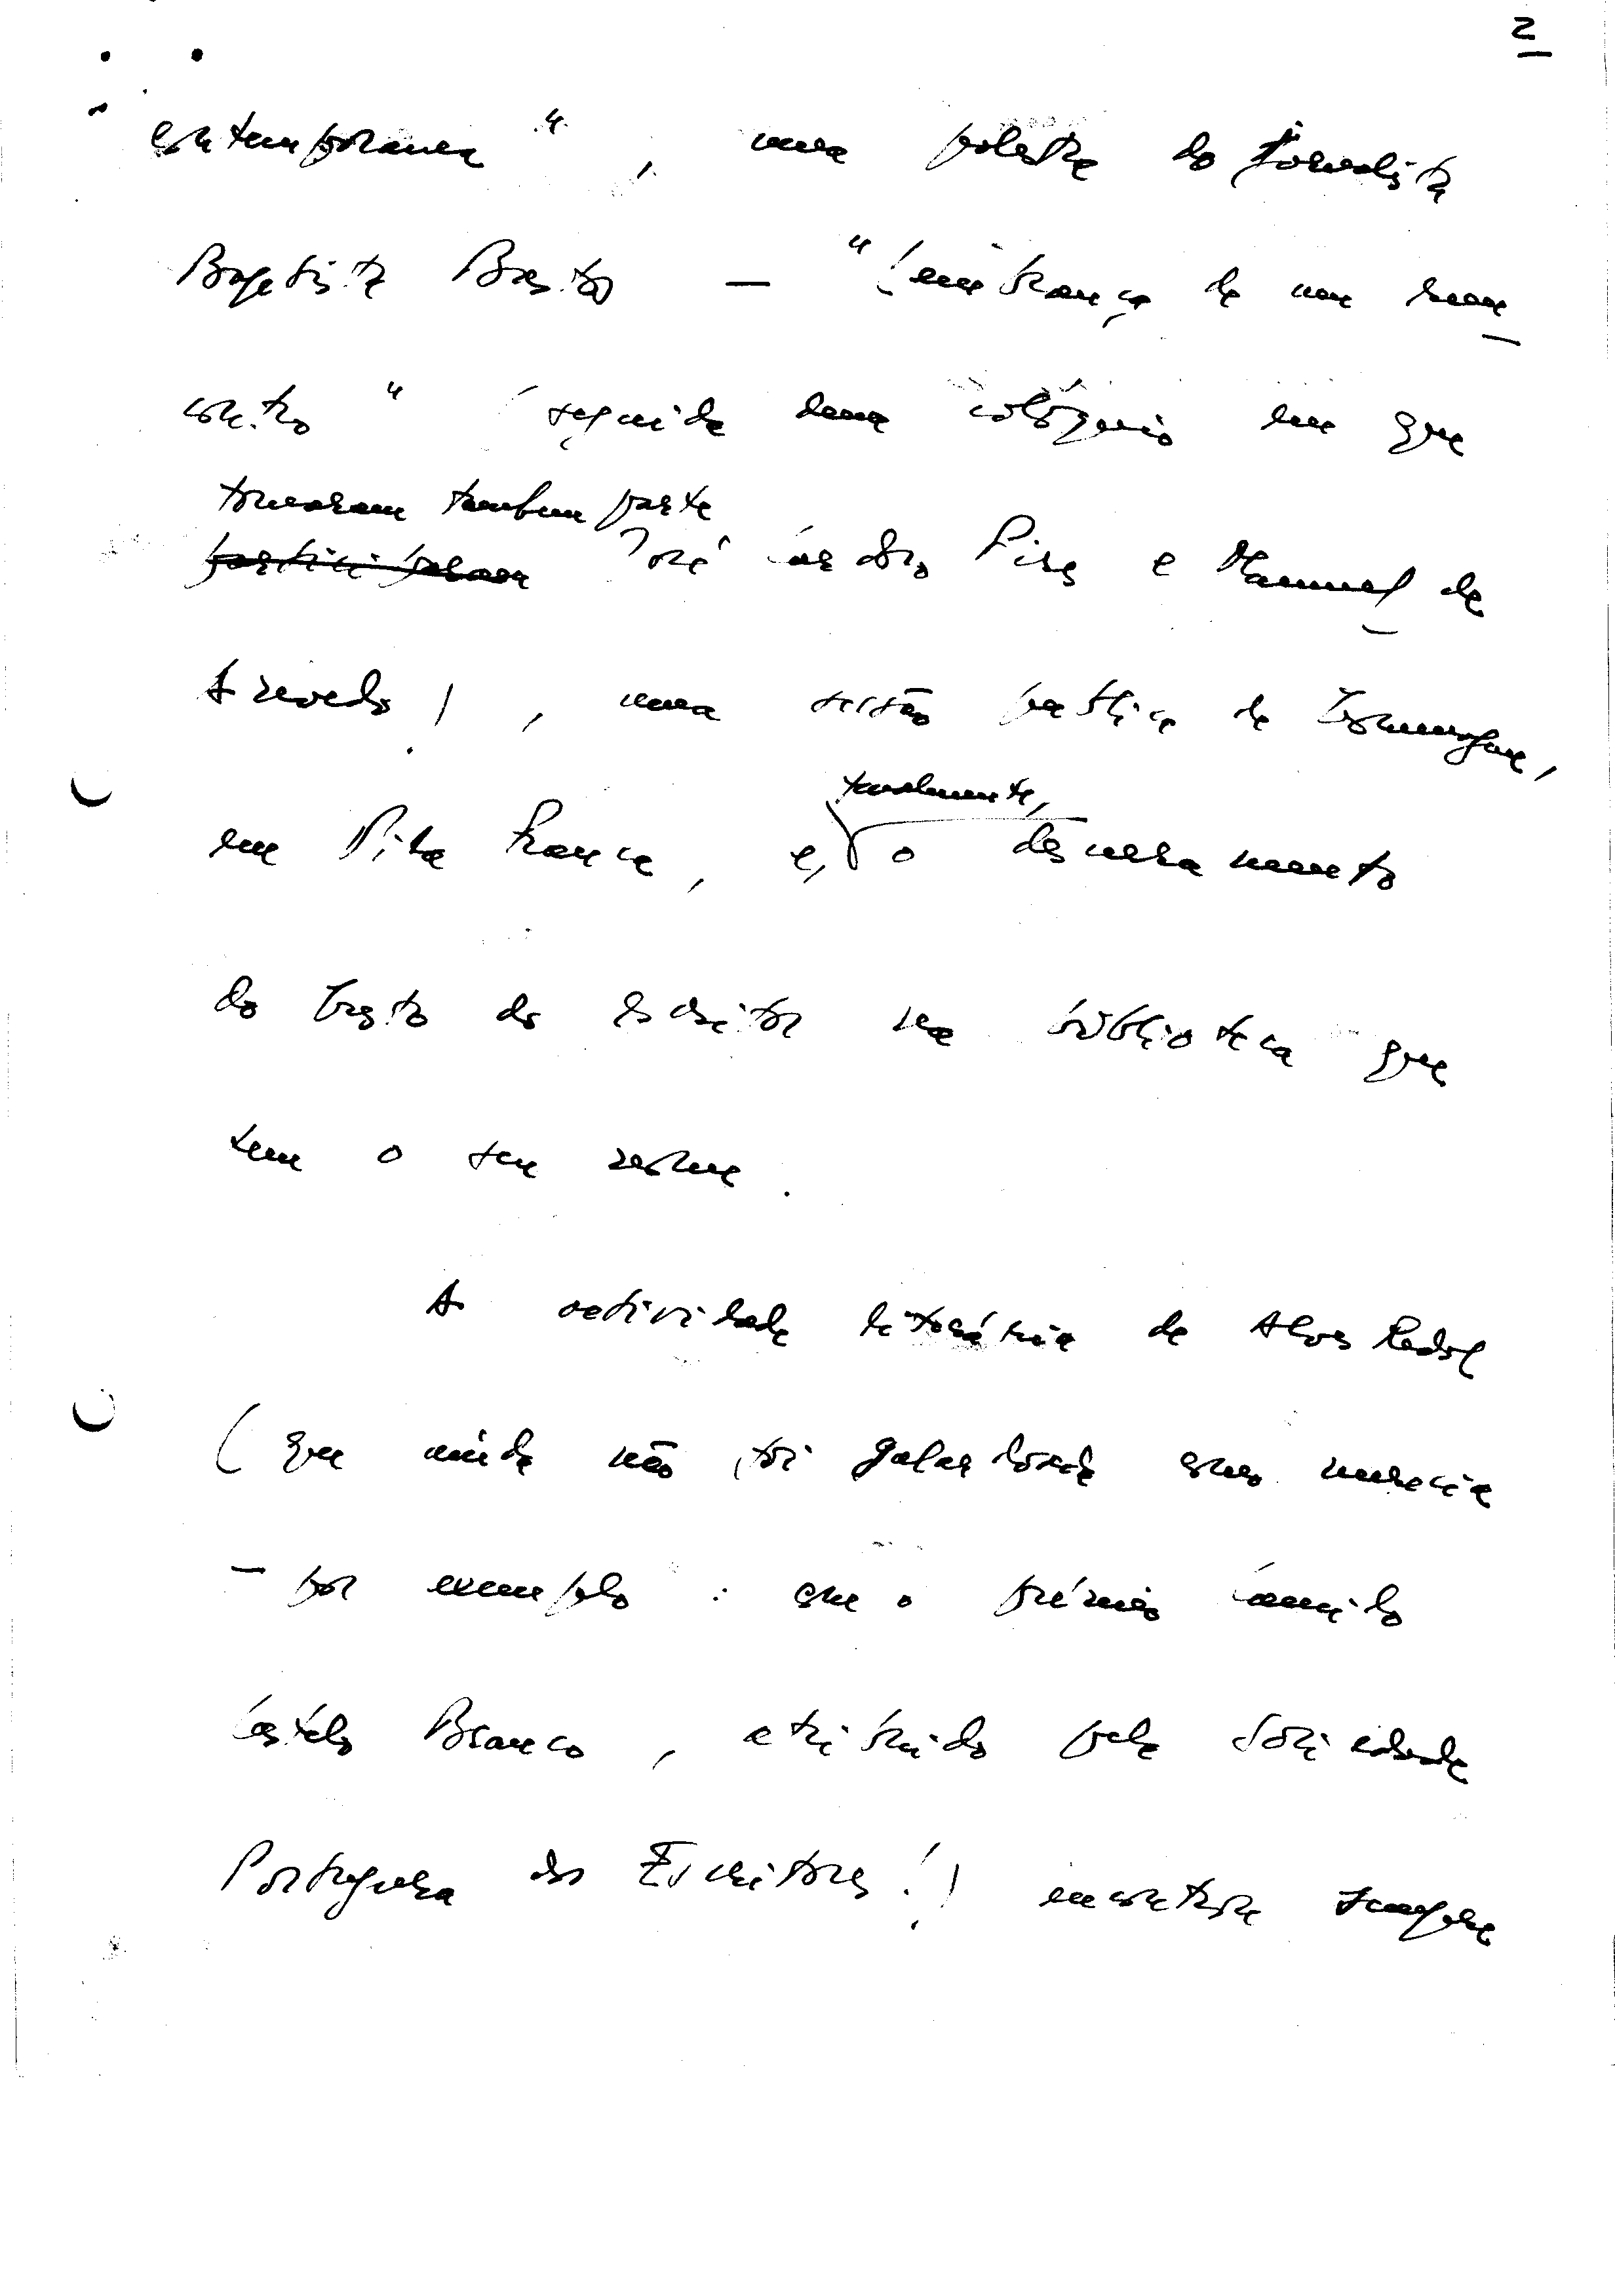 2
contemporânea", uma palestra do jornalista
Baptista Bastos — "Lembrança de um
" (seguida duma colóquio em que
tomaram tambem parte
participaram José Cardoso Pires e Manuel de
Azevedo), uma sessão pública de homenagem,
em Vila Franca, e,
finalmente,
o descerramento
do busto do escritor na biblioteca que
tem o seu nome.
A actividade literária de Alves Redol
(que ainda não foi galardoada como merecia
— por exemplo: com o prémio Camilo
Castelo Branco, atribuido pela Sociedade
Portuguesa dos Escritores!) encontra sempre